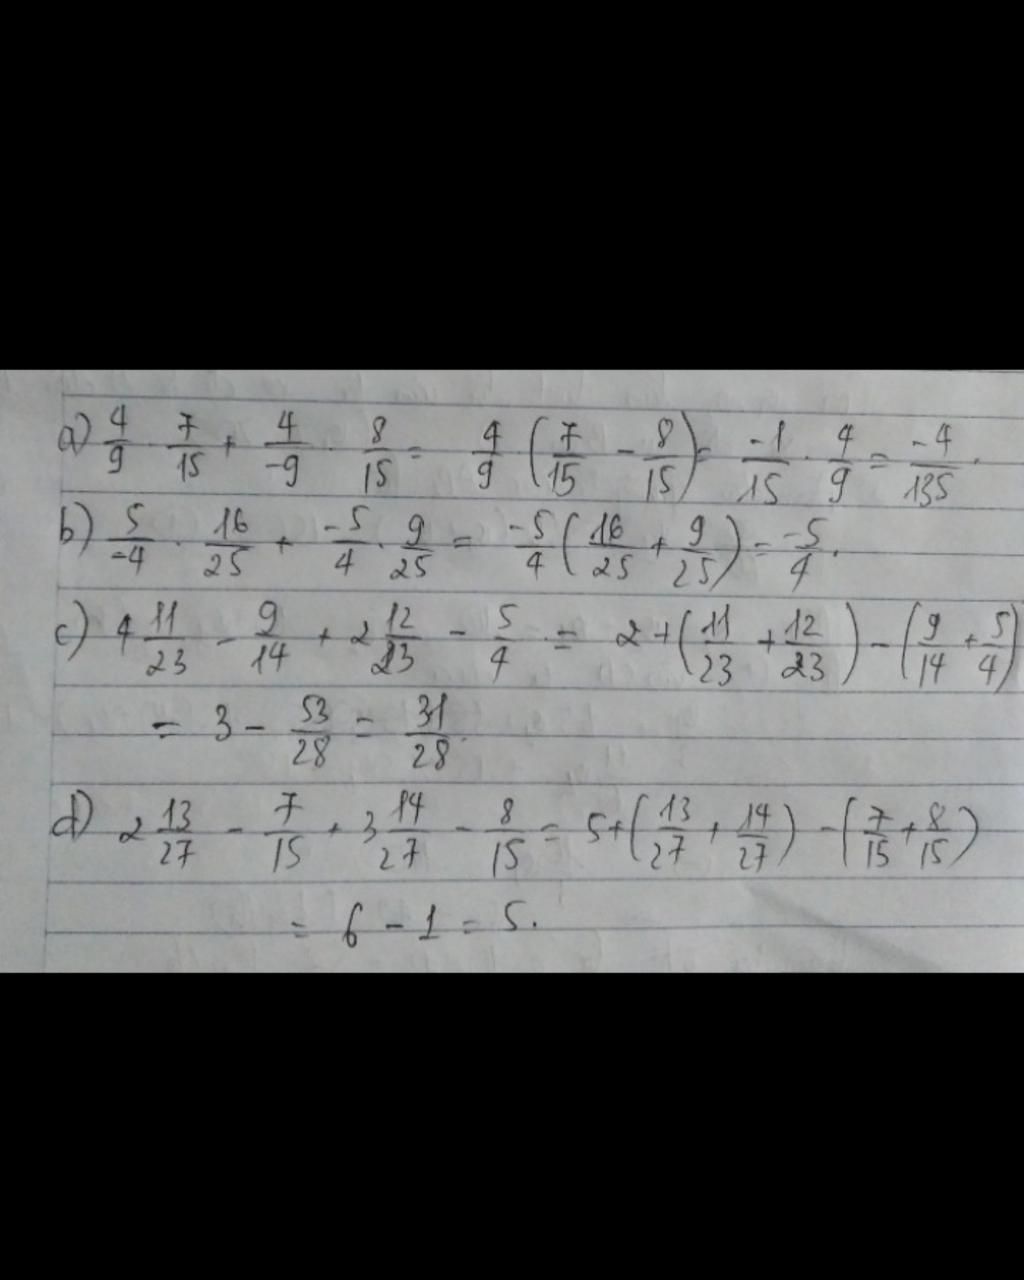 a) 4/9 · 7/15 + 4/-9 · 8/15 = 4/9 (7/15 - 8/15) = -1/15 · 4/9 = -4/135.
b) 5/-4 · 16/25 + -5/4 · 9/25 = -5/4 (16/25 + 9/25) = -5/4.
c) 4 11/23 - 9/14 + 2 12/23 - 5/4 = 2 + (11/23 + 12/23) - (9/14 + 5/4)
= 3 - 53/28 = 31/28.
d) 2 13/27 - 7/15 + 3 14/27 - 8/15 = 5 + (13/27 + 14/27) - (7/15 + 8/15)
= 6 - 1 = 5.